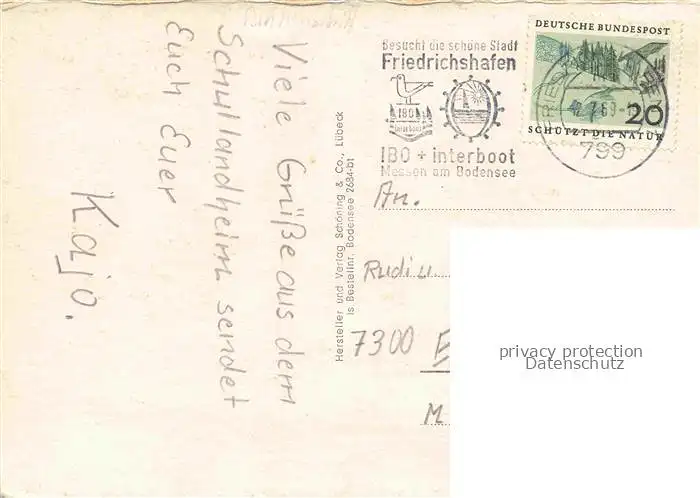 Viele Grüße aus dem
Schullandheim sendet
Euch Euer
Kajo.
Hersteller und Verlag Schöning & Co., Lübeck
Is Bestellnr. Bodensee 2684-b1
Besucht die schöne Stadt
Friedrichshafen
IBO
interboot
IBO + interboot
Messen am Bodensee
DEUTSCHE BUNDESPOST
20
SCHÜTZT DIE NATUR
799
An.
Rudi u.
7300 E
M
privacy protection
Datenschutz